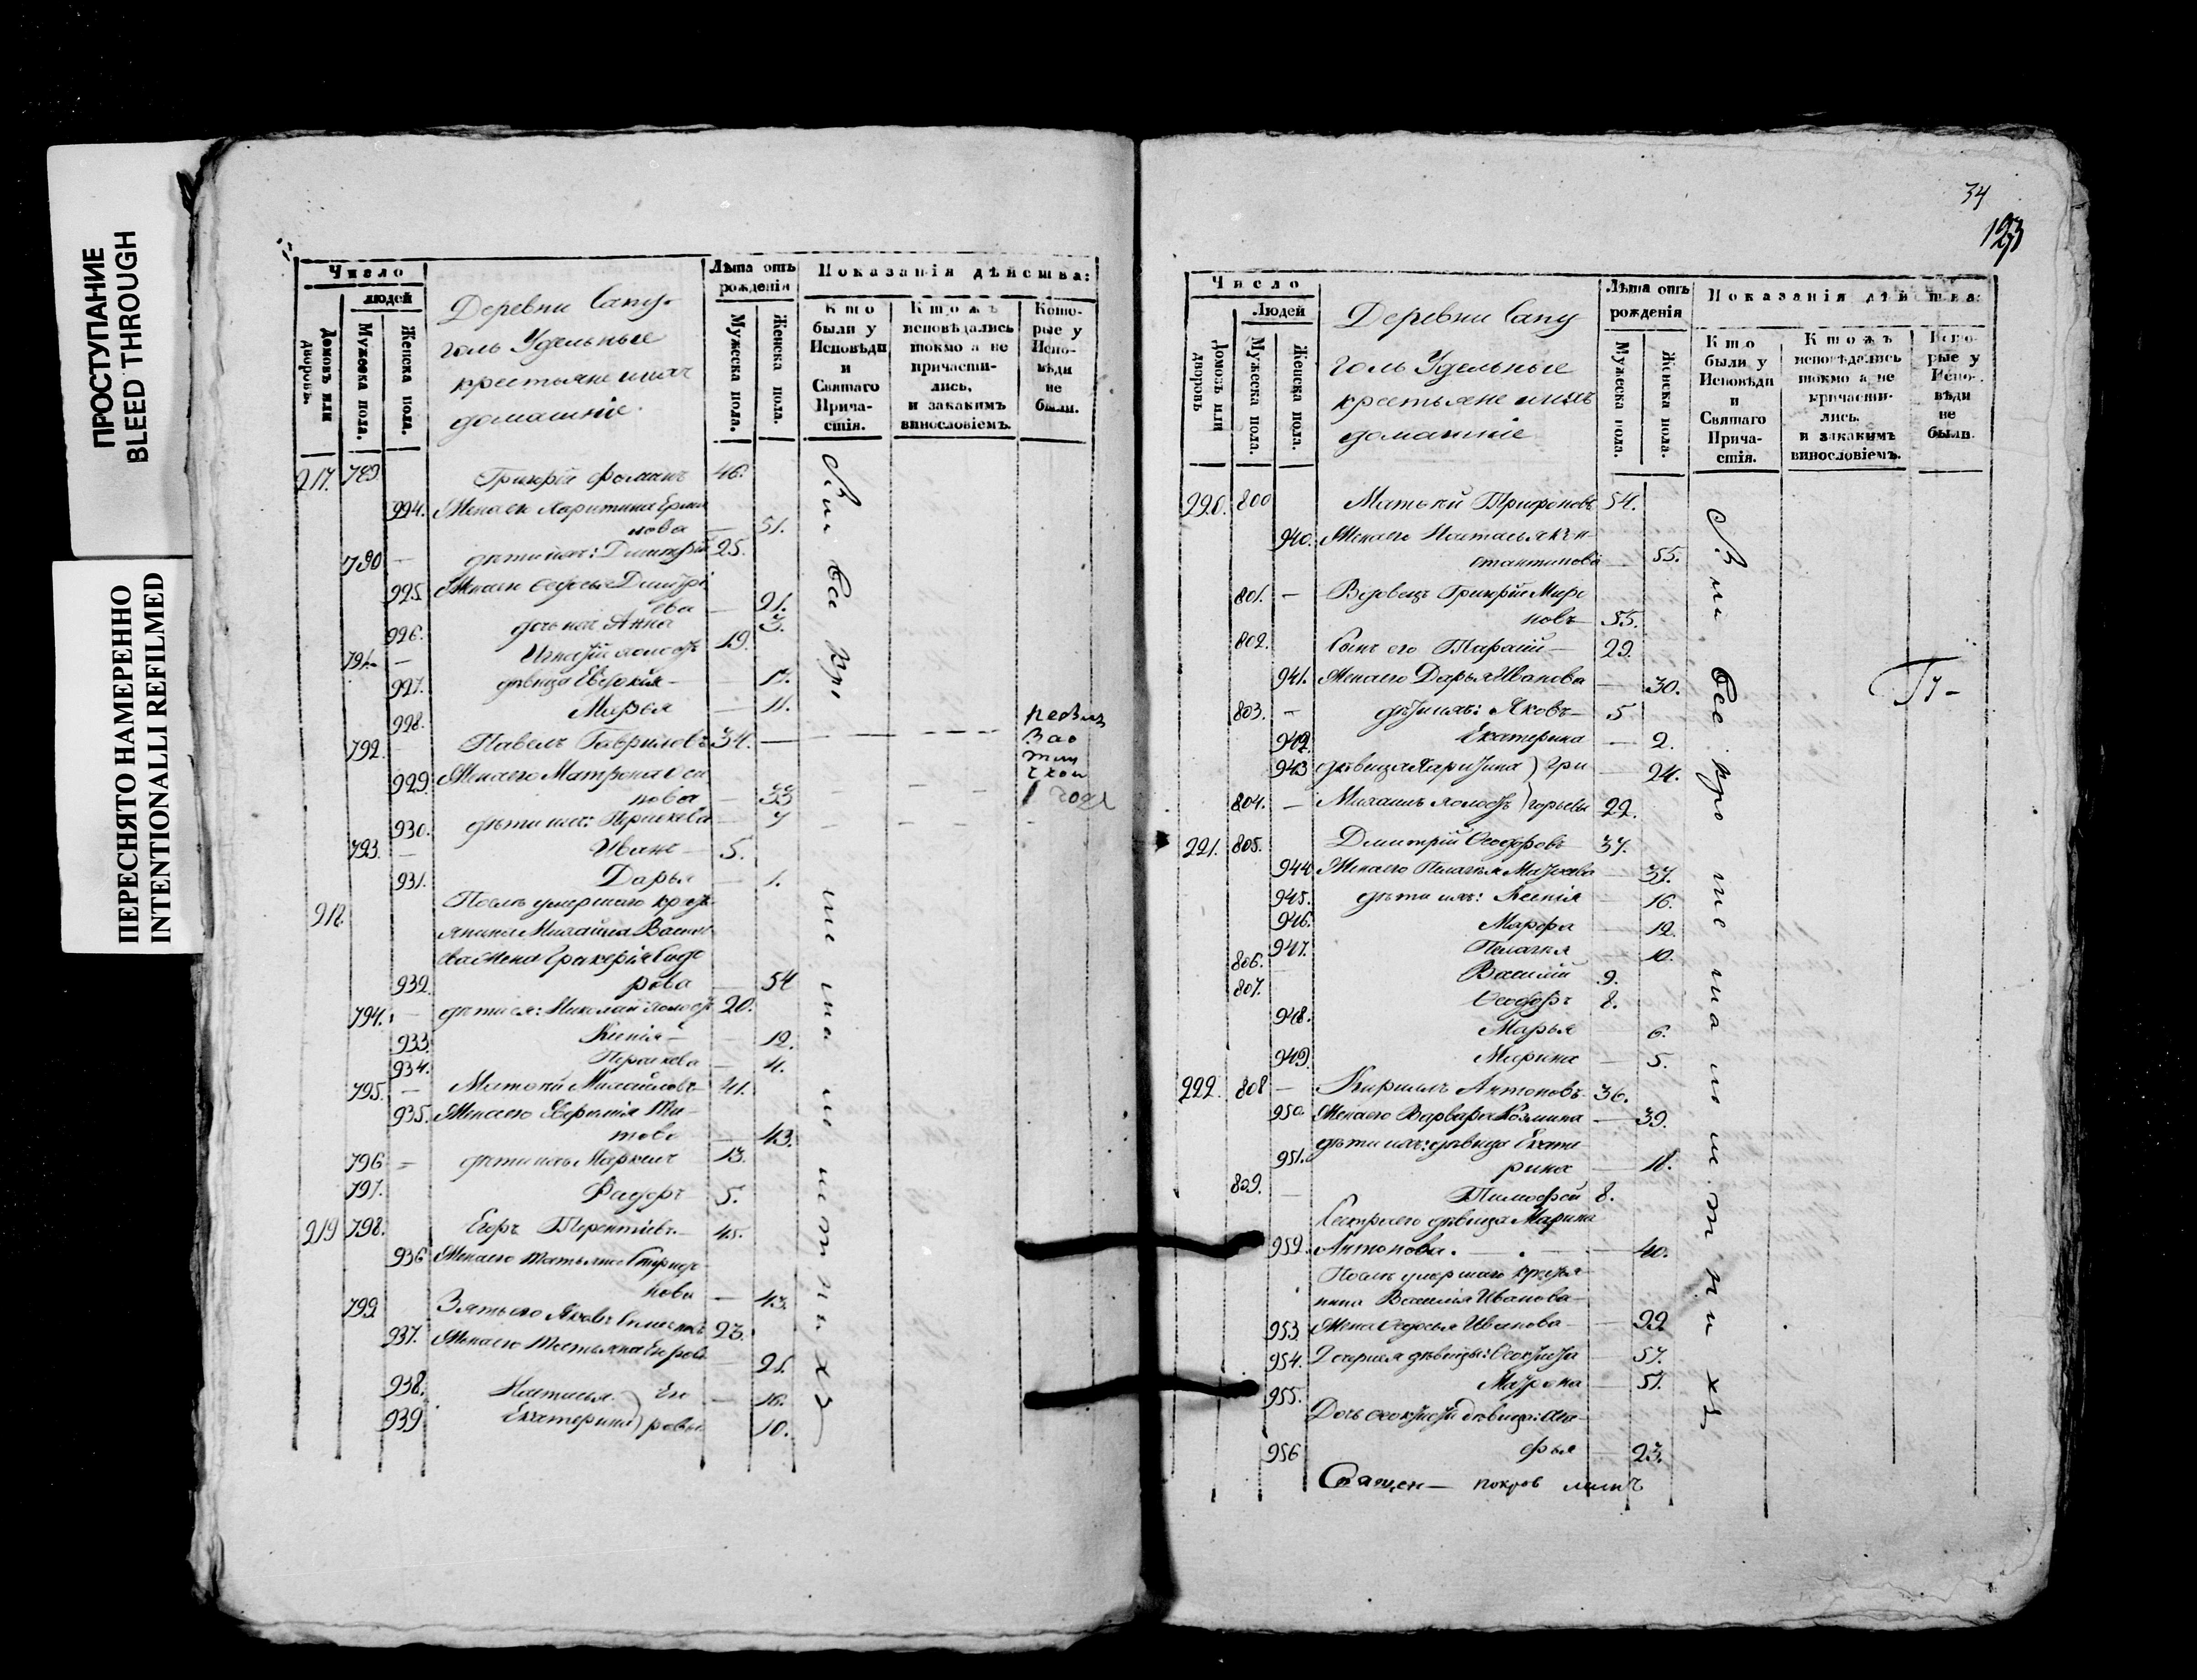 ПРОСТУПАНИЕ
BLEED THROUGH
ПЕРЕСНЯТО НАМЕРЕННО
INTENTIONALLI REFILMED
Число
людей
Домовъ или дворовъ.
Мужеска пола.
Женска пола.
Деревни Сапу-
голь Удельные
крестьяне и ихъ
домашніе.
Лѣта отъ рожденія
Мужеска пола.
Женска пола.
Показанія дѣйства:
Кто были у Исповѣди и Святаго Прича-стія.
Ктожъ исповѣдались токмо а не причасти-лись, и закакимъ винословіемъ.
Кото-рые у Испо-вѣди не были.
217. 789. Григорій Фоминъ 46.
924. Жена ек Харитина Ерми
лова — 51.
790 — дѣти ихъ: Дмитрій 25.
925. Жена его Ѳедосья Димитрі
ева — 21.
926. дочь ихъ Анна 3.
791. — Игнатій холостъ 19.
927. дѣвица Евдокія — 17.
928. Марья — 11.
792. Павелъ Гавриловъ 34. —
929 Жена его Матрона Оси
пова — 33
930. дѣти ихъ: Парскева — 7
793. — Иванъ — 5.
931. Дарья — 1.
218. Послѣ умершаго крестъ-
янина Михайла Василь
ева жена Гликерія Сидо
932. рова — 54
794. — дѣти ея: Николай холостъ 20.
933. Ксенія — 12.
934. Параскева — 11.
795. — Матвѣй Михайловъ 41.
935. Жена его Евфимія Ти-
това — 43.
796 — дѣти ихъ Маркелъ 13.
797. Федоръ — 5.
219 798. Егоръ Терентіевъ — 45.
936 Жена его Татьяна Спирид
нова — 43.
799 Зять его Яковъ 23.
937. Жена его Татьяна Егоров
25.
938. Настасья. Его — 16.
939 Екатерина ровы 10.
Сіи все
не на
34
123
Число
Людей
Домовъ или дворовъ
Мужеска пола.
Женска пола.
Деревни Сапу
голь Удельные
крестьяне и ихъ
домашніе
Лѣта отъ рожденія
Мужеска пола.
Женска пола.
Показанія дѣйства:
Кто были у Исповѣди и Святаго Прича-стія.
Ктожъ исповѣдались токмо а не причасти-лись. и закакимъ винословіемъ.
рые у Испо-вѣди не были.
220. 800 Матвѣй Трифоновъ 54.
940. Жена его Настасья Кон-
стантинова — 55.
801. — Вдовецъ Григорій Миро
новъ — 55.
802. Сынъ его Тарасій — 29.
941. Жена его Дарья Иванова — 30.
803. — дѣти ихъ: Яковъ — 5
942. Екатерина — 2.
943 дѣвица Харитина ) Гри — 24.
804. — Михаилъ холостъ ) горьевы 22.
221. 805. Дмитрій Ѳеодоровъ — 37.
944 Жена его Пелагея Матвеева — 37.
945. дѣти ихъ: Ксенія — 16.
946. Марфа — 12
947. Пелагея — 10.
806. Василій 9.
807. Ѳеодоръ 8.
948. Марья 6.
949. Марина — 5.
222. 808 — Кирилъ Антоновъ 36.
950 Жена его Варвара Козмина — 39.
дѣти ихъ: дѣвица Екате
951. рина — 18.
809. — Тимофей 8.
Сестра его дѣвица Марина
952. Антонова. — 40.
Послѣ умершаго крестья-
нина Василія Иванова
953. Жена Ѳедосья Иванова — 99
954. Дочери ея дѣвицы: Ѳеоктиста — 57.
955. Матрона — 51.
Дочь Ѳеоктисты дѣвица: Ага-
956 фья — 23.
Священ — покров
Сіи все
не на